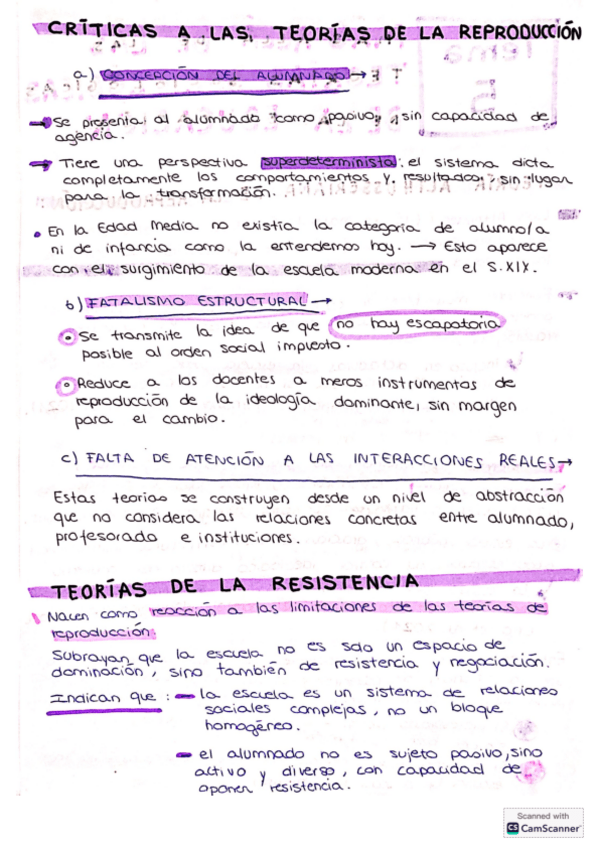 CRÍTICAS A LAS TEORÍAS DE LA REPRODUCCIÓN
a) CONCEPCIÓN DEL ALUMNADO →
→ Se presenta al alumnado como pasivo, sin capacidad de
agencia.
→ Tiene una perspectiva superdeterminista: el sistema dicta
completamente los comportamientos y resultados, sin lugar
para la transformación.
• En la Edad Media no existía la categoría de alumno/a
ni de infancia como la entendemos hoy. → Esto aparece
con el surgimiento de la escuela moderna en el S.XIX.
b) FATALISMO ESTRUCTURAL →
Se transmite la idea de que no hay escapatoria
posible al orden social impuesto.
Reduce a los docentes a meros instrumentos de
reproducción de la ideología dominante, sin margen
para el cambio.
c) FALTA DE ATENCIÓN A LAS INTERACCIONES REALES →
Estas teorías se construyen desde un nivel de abstracción
que no considera las relaciones concretas entre alumnado,
profesorado e instituciones.
TEORÍAS DE LA RESISTENCIA
Nacen como reacción a las limitaciones de las teorías de
reproducción.
Subrayan que la escuela no es solo un espacio de
dominación, sino también de resistencia y negociación.
Indican que: – la escuela es un sistema de relaciones
sociales complejas, no un bloque
homogéneo.
– el alumnado no es sujeto pasivo, sino
activo y diverso, con capacidad de
oponer resistencia.
Scanned with
CS CamScanner